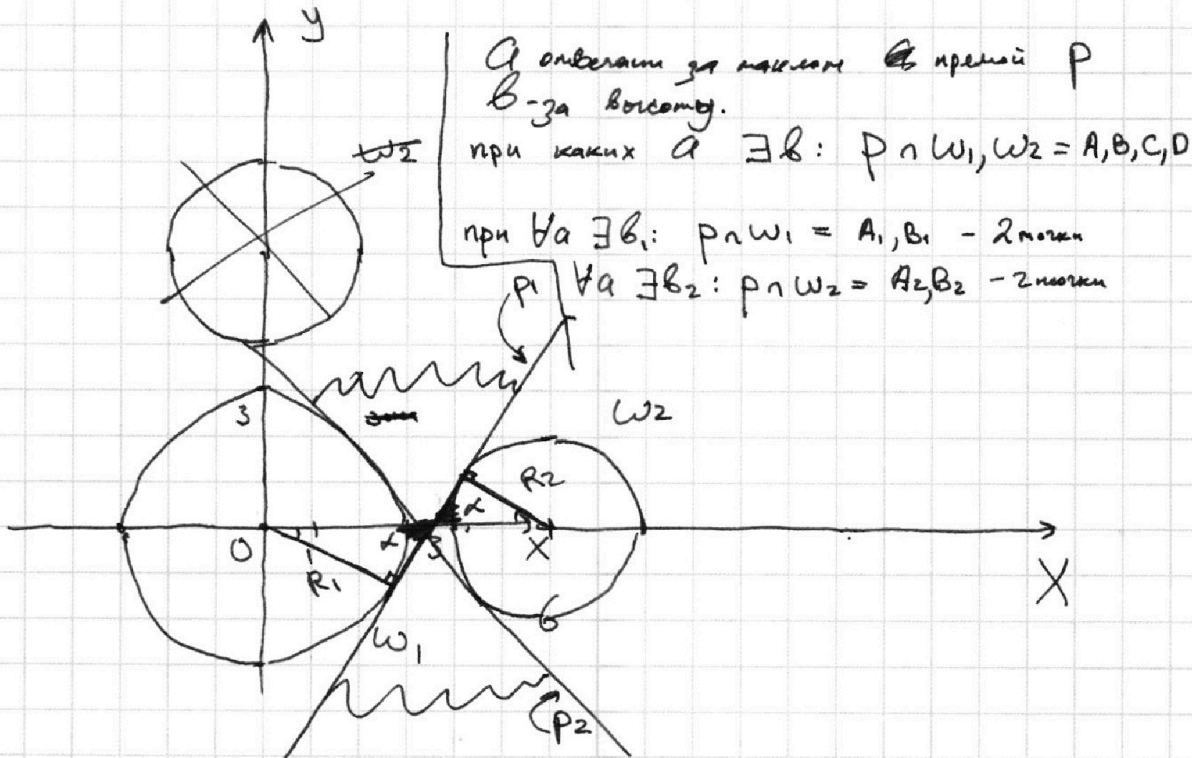 y
a отвечает за наклон прямой p
b - за высоту.
при каких a ∃b: p∩ω₁,ω₂ = A,B,C,D
при ∀a ∃b₁: p∩ω₁ = A₁,B₁ - 2 точки
∀a ∃b₂: p∩ω₂ = A₂,B₂ - 2 точки
ω₂
p₁
3
ω₂
R₂
α
0
α
3
X
R₁
6
X
ω₁
p₂